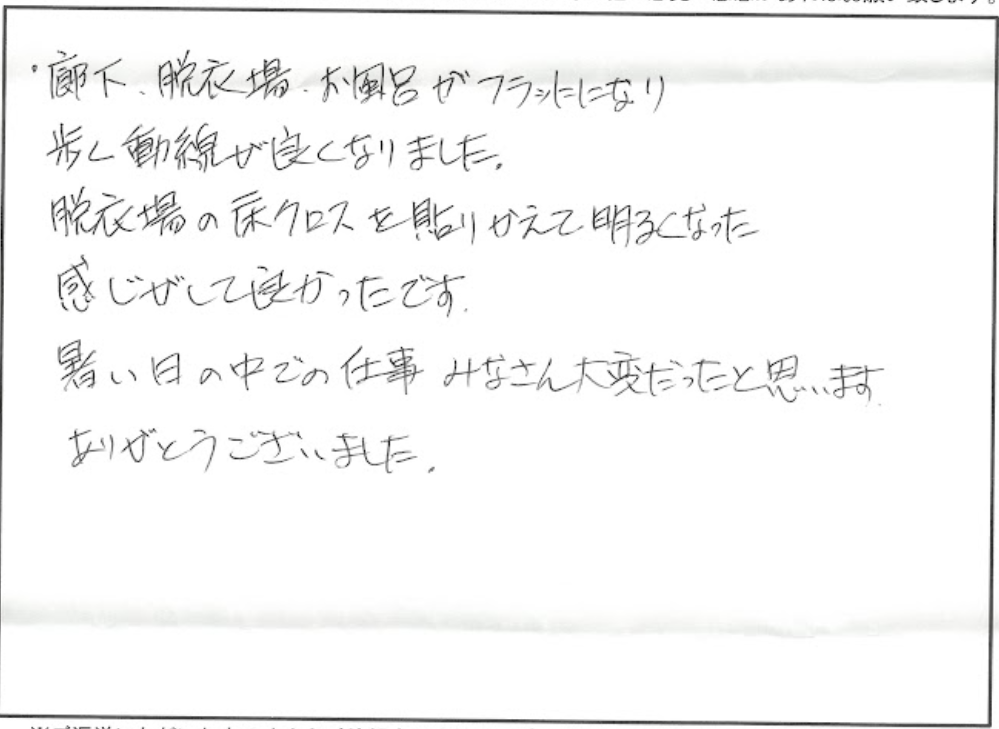 ・廊下、脱衣場、お風呂がフラットになり
歩く動線が良くなりました。
脱衣場の床クロスを貼りかえて明るくなった
感じがして良かったです。
暑い日の中での仕事 みなさん大変だったと思います。
ありがとうございました。